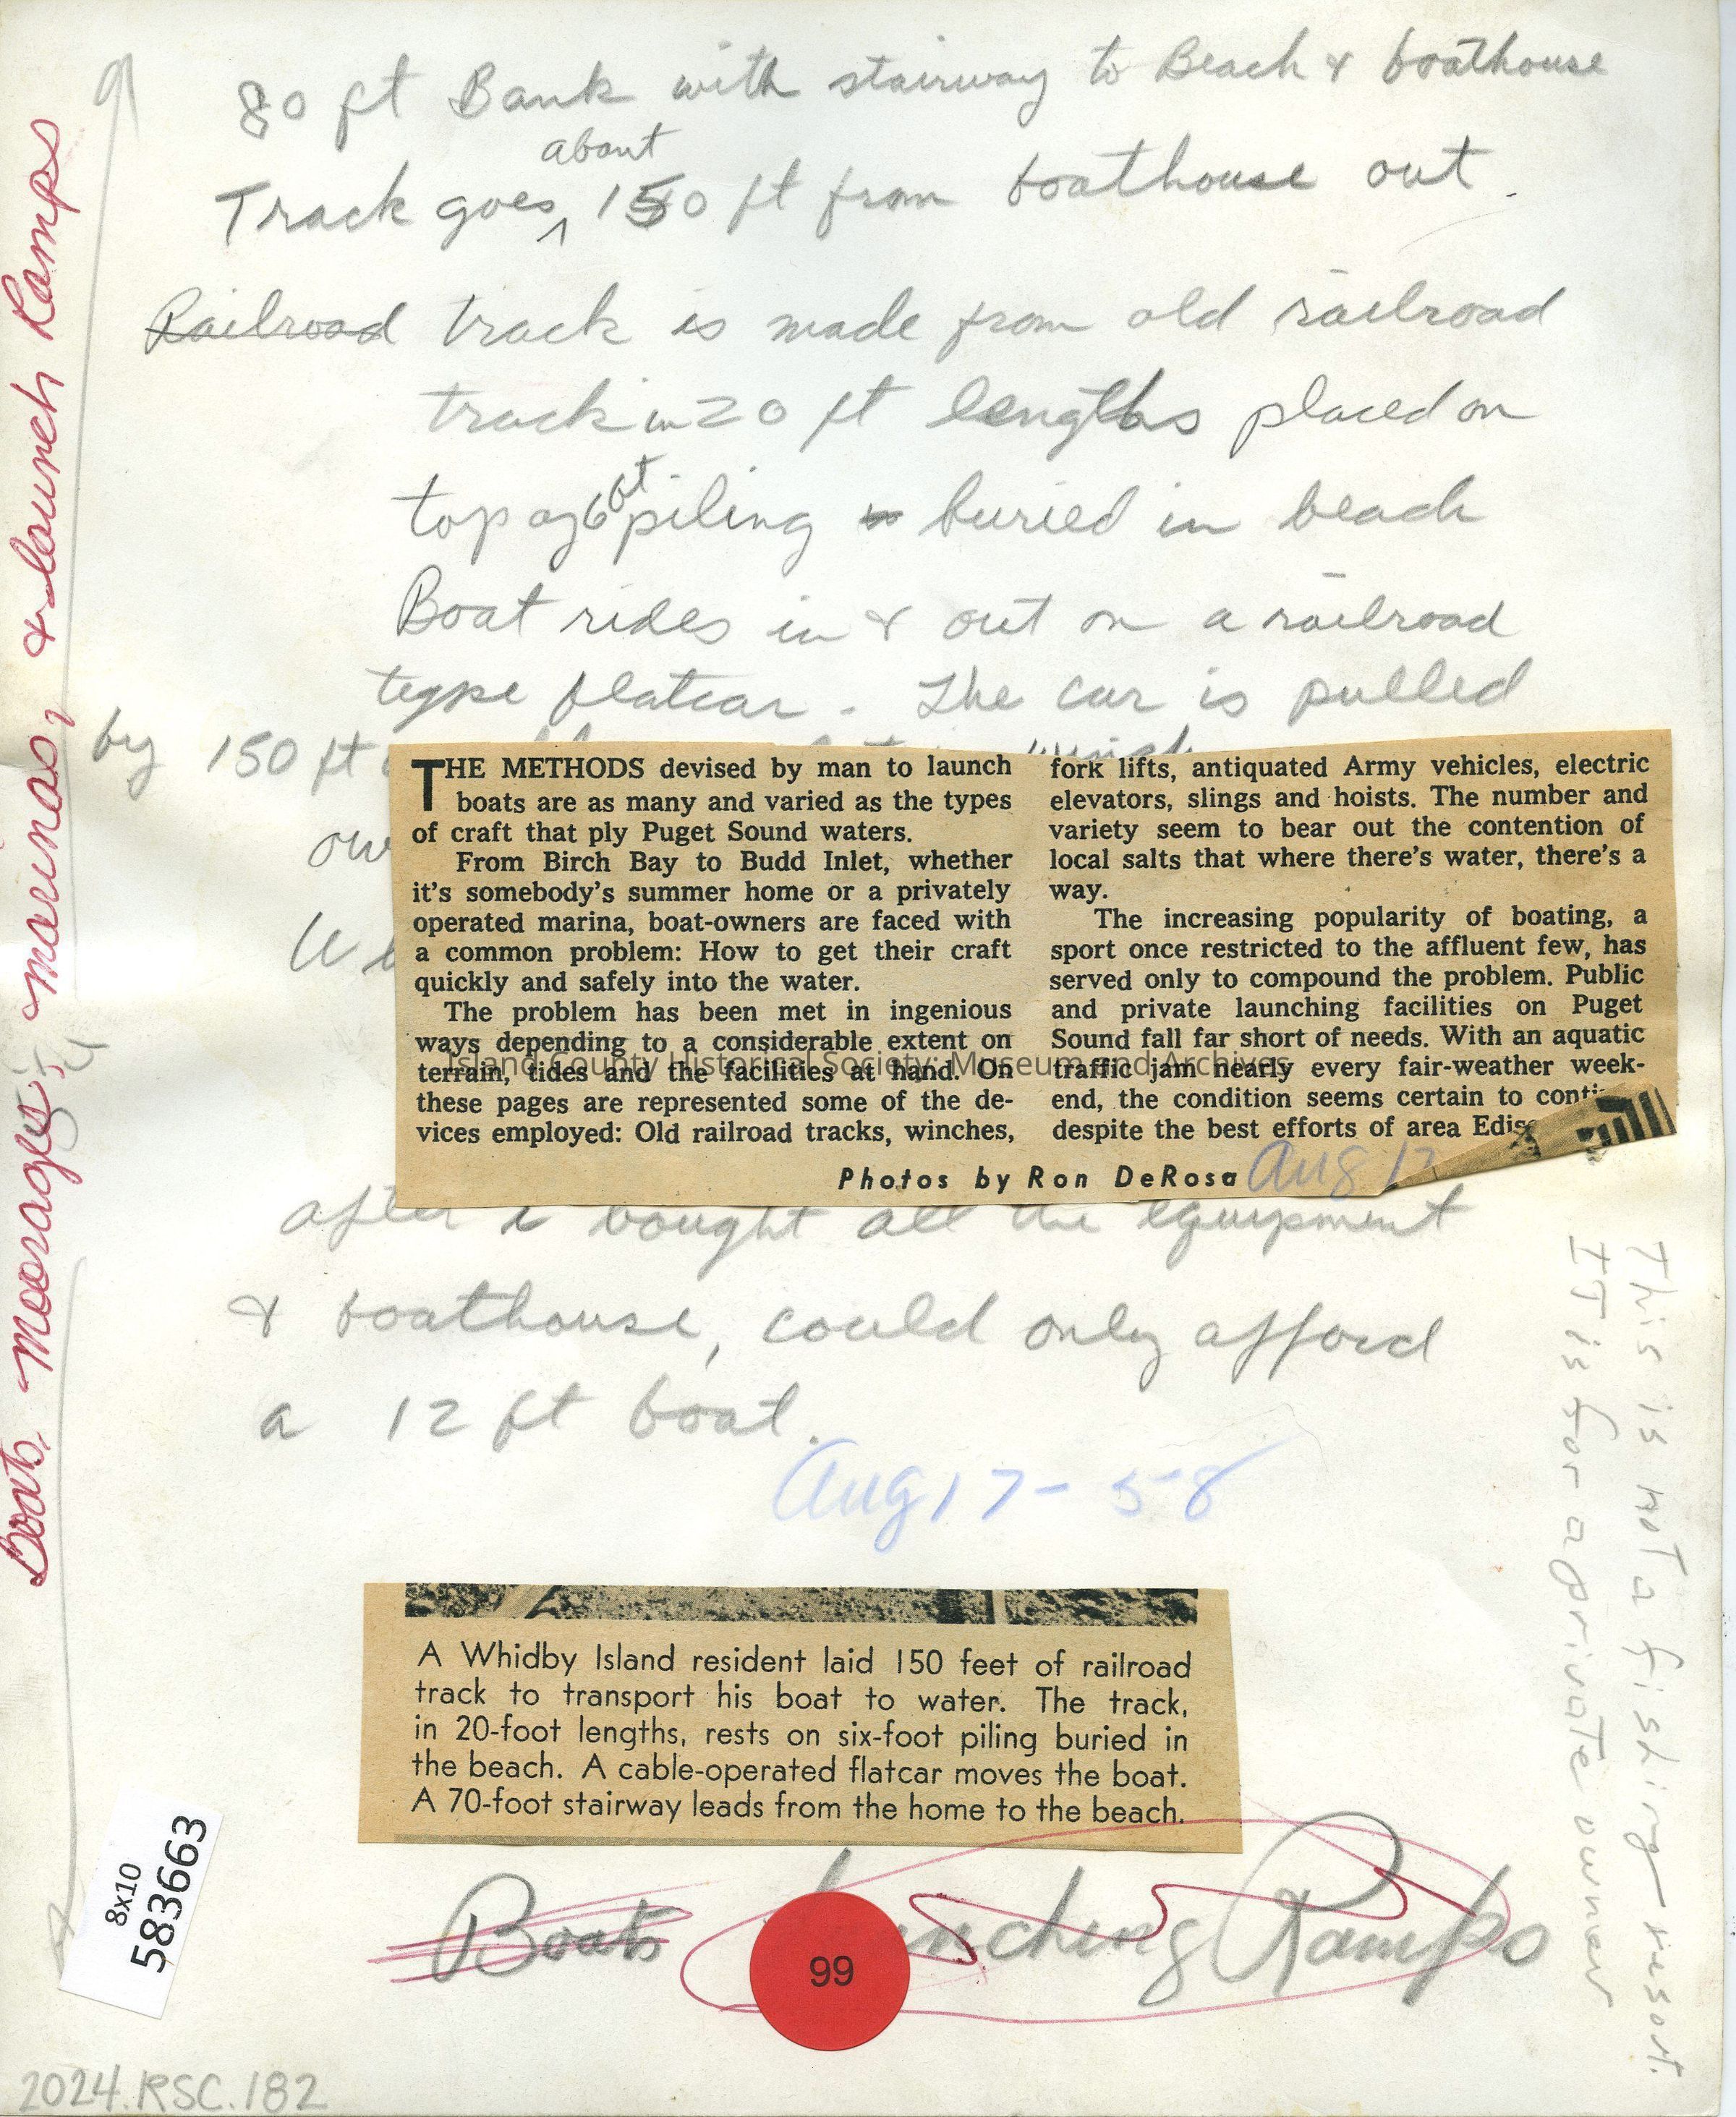 80 ft Bank with stairway to Beach & boathouse
about
Track goes ^ 150 ft from boathouse out.
Railroad track is made from old railroad
track in 20 ft lengths placed on
top of 6 ft piling buried in beach
Boat rides in & out on a railroad
type flatcar. The car is pulled
by 150 ft
THE METHODS devised by man to launch
boats are as many and varied as the types
of craft that ply Puget Sound waters.
From Birch Bay to Budd Inlet, whether
it's somebody's summer home or a privately
operated marina, boat-owners are faced with
a common problem: How to get their craft
quickly and safely into the water.
The problem has been met in ingenious
ways depending to a considerable extent on
terrain, tides and the facilities at hand. On
these pages are represented some of the de-
vices employed: Old railroad tracks, winches,
fork lifts, antiquated Army vehicles, electric
elevators, slings and hoists. The number and
variety seem to bear out the contention of
local salts that where there's water, there's a
way.
The increasing popularity of boating, a
sport once restricted to the affluent few, has
served only to compound the problem. Public
and private launching facilities on Puget
Sound fall far short of needs. With an aquatic
traffic jam nearly every fair-weather week-
end, the condition seems certain to
despite the best efforts of area
Photos by Ron DeRosa
Aug 17
Island County Historical Society: Museum and Archives
after I bought all the equipment
& boathouse, could only afford
a 12 ft boat.
Aug 17-58
A Whidby Island resident laid 150 feet of railroad
track to transport his boat to water. The track,
in 20-foot lengths, rests on six-foot piling buried in
the beach. A cable-operated flatcar moves the boat.
A 70-foot stairway leads from the home to the beach.
Boats Launching Ramps
99
8x10
583663
2024.RSC.182
Boat, moorages, marinas, & launch Ramps
This is not a fishing resort.
IT is for a private owner